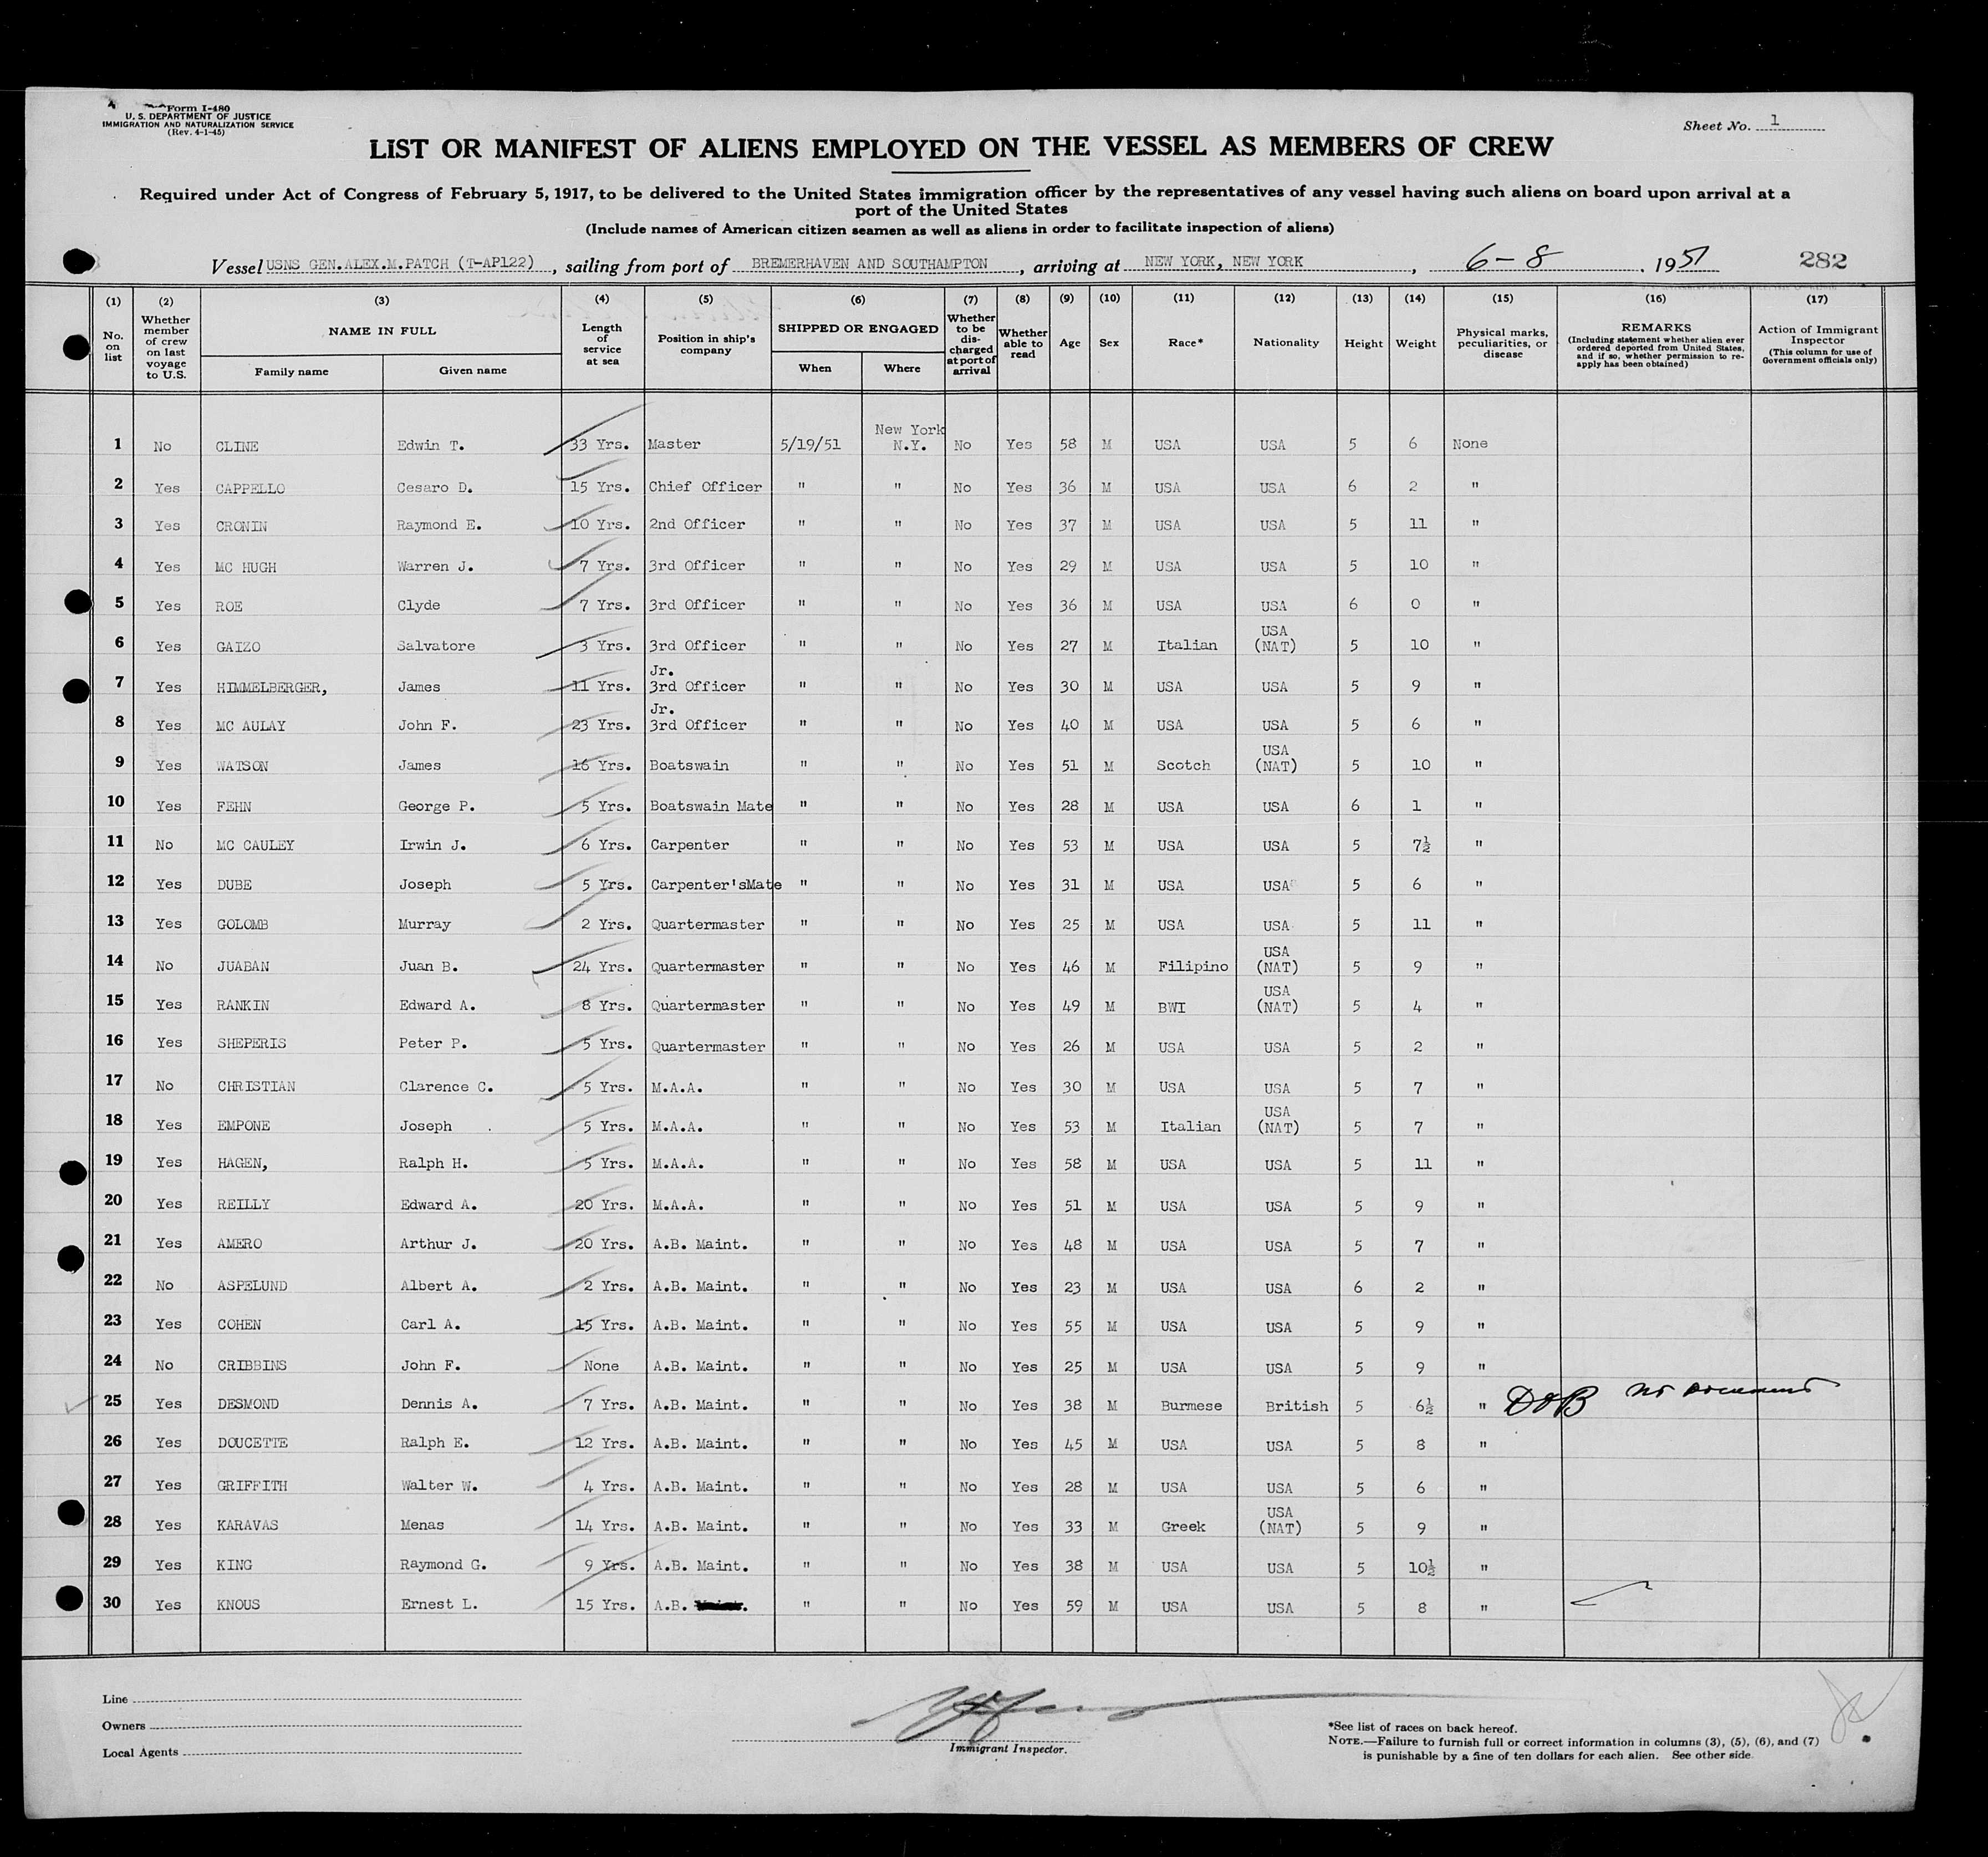 Form I-480
U. S. DEPARTMENT OF JUSTICE
IMMIGRATION AND NATURALIZATION SERVICE
(Rev. 4-1-45)
Sheet No. 1
LIST OR MANIFEST OF ALIENS EMPLOYED ON THE VESSEL AS MEMBERS OF CREW
Required under Act of Congress of February 5, 1917, to be delivered to the United States immigration officer by the representatives of any vessel having such aliens on board upon arrival at a
port of the United States
(Include names of American citizen seamen as well as aliens in order to facilitate inspection of aliens)
Vessel USNS GEN.ALEX.M.PATCH (T-AP122), sailing from port of BREMERHAVEN AND SOUTHAMPTON, arriving at NEW YORK, NEW YORK, 6-8, 1951 282
(1) No. on list
(2) Whether member of crew on last voyage to U.S.
(3) NAME IN FULL Family name Given name
(4) Length of service at sea
(5) Position in ship's company
(6) SHIPPED OR ENGAGED When Where
(7) Whether to be discharged at port of arrival
(8) Whether able to read
(9) Age
(10) Sex
(11) Race*
(12) Nationality
(13) Height
(14) Weight
(15) Physical marks, peculiarities, or disease
(16) REMARKS (Including statement whether alien ever ordered deported from United States, and if so, whether permission to re-apply has been obtained)
(17) Action of Immigrant Inspector (This column for use of Government officials only)
1 No CLINE Edwin T. 33 Yrs. Master 5/19/51 New York N.Y. No Yes 58 M USA USA 5 6 None
2 Yes CAPPELLO Cesaro D. 15 Yrs. Chief Officer " " No Yes 36 M USA USA 6 2 "
3 Yes CRONIN Raymond E. 10 Yrs. 2nd Officer " " No Yes 37 M USA USA 5 11 "
4 Yes MC HUGH Warren J. 7 Yrs. 3rd Officer " " No Yes 29 M USA USA 5 10 "
5 Yes ROE Clyde 7 Yrs. 3rd Officer " " No Yes 36 M USA USA 6 0 "
6 Yes GAIZO Salvatore 3 Yrs. 3rd Officer " " No Yes 27 M Italian USA (NAT) 5 10 "
7 Yes HIMMELBERGER, James 11 Yrs. Jr. 3rd Officer " " No Yes 30 M USA USA 5 9 "
8 Yes MC AULAY John F. 23 Yrs. Jr. 3rd Officer " " No Yes 40 M USA USA 5 6 "
9 Yes WATSON James 16 Yrs. Boatswain " " No Yes 51 M Scotch USA (NAT) 5 10 "
10 Yes FEHN George P. 5 Yrs. Boatswain Mate " " No Yes 28 M USA USA 6 1 "
11 No MC CAULEY Irwin J. 6 Yrs. Carpenter " " No Yes 53 M USA USA 5 7½ "
12 Yes DUBE Joseph 5 Yrs. Carpenter'sMate " " No Yes 31 M USA USA 5 6 "
13 Yes GOLOMB Murray 2 Yrs. Quartermaster " " No Yes 25 M USA USA 5 11 "
14 No JUABAN Juan B. 24 Yrs. Quartermaster " " No Yes 46 M Filipino USA (NAT) 5 9 "
15 Yes RANKIN Edward A. 8 Yrs. Quartermaster " " No Yes 49 M BWI USA (NAT) 5 4 "
16 Yes SHEPERIS Peter P. 5 Yrs. Quartermaster " " No Yes 26 M USA USA 5 2 "
17 No CHRISTIAN Clarence C. 5 Yrs. M.A.A. " " No Yes 30 M USA USA 5 7 "
18 Yes EMPONE Joseph 5 Yrs. M.A.A. " " No Yes 53 M Italian USA (NAT) 5 7 "
19 Yes HAGEN, Ralph H. 5 Yrs. M.A.A. " " No Yes 58 M USA USA 5 11 "
20 Yes REILLY Edward A. 20 Yrs. M.A.A. " " No Yes 51 M USA USA 5 9 "
21 Yes AMERO Arthur J. 20 Yrs. A.B. Maint. " " No Yes 48 M USA USA 5 7 "
22 No ASPELUND Albert A. 2 Yrs. A.B. Maint. " " No Yes 23 M USA USA 6 2 "
23 Yes COHEN Carl A. 15 Yrs. A.B. Maint. " " No Yes 55 M USA USA 5 9 "
24 No CRIBBINS John F. None A.B. Maint. " " No Yes 25 M USA USA 5 9 "
25 Yes DESMOND Dennis A. 7 Yrs. A.B. Maint. " " No Yes 38 M Burmese British 5 6½ " No Documents
26 Yes DOUCETTE Ralph E. 12 Yrs. A.B. Maint. " " No Yes 45 M USA USA 5 8 "
27 Yes GRIFFITH Walter W. 4 Yrs. A.B. Maint. " " No Yes 28 M USA USA 5 6 "
28 Yes KARAVAS Menas 14 Yrs. A.B. Maint. " " No Yes 33 M Greek USA (NAT) 5 9 "
29 Yes KING Raymond G. 9 Yrs. A.B. Maint. " " No Yes 38 M USA USA 5 10½ "
30 Yes KNOUS Ernest L. 15 Yrs. A.B. " " No Yes 59 M USA USA 5 8 "
Line
Owners
Local Agents
Immigrant Inspector.
*See list of races on back hereof.
NOTE.—Failure to furnish full or correct information in columns (3), (5), (6), and (7)
is punishable by a fine of ten dollars for each alien. See other side.